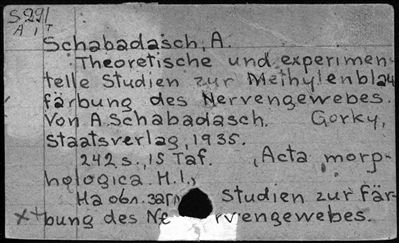 S.291
A I T
Schabadasch, A.
Theoretische und experimen-
telle Studien zur Methylenblau
färbung des Nervengewebes.
Von A. Schabadasch. Gorky,
Staatsverlag, 1935.
242 s., 15 Taf. (Acta morp-
hologica. H. 1.,
На обл. загл Studien zur Fär-
bung des Ne rvengewebes.